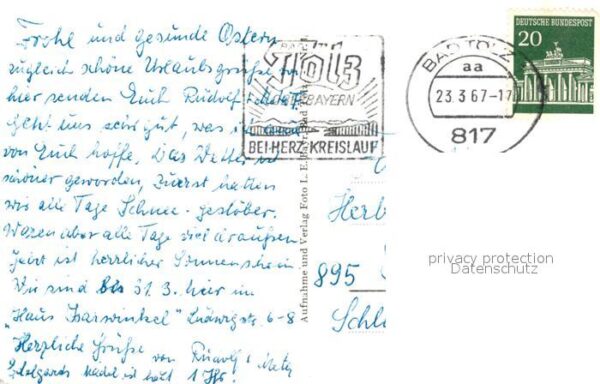 Frohe und gesunde Ostern
zugleich schöne Urlaubsgrüße von
hier senden Euch Rudolf
geht uns sehr gut, was ich
von Euch hoffe, Das Wetter ist
schöner geworden, Zuerst hatten
wir alle Tage Schnee-gestöber.
Waren aber alle Tage viel draußen
Jetzt ist herrlicher Sonnenschein
Wir sind bis 31.3. hier im
"Haus Isarwinkel" Ludwigstr. 6-8
Herzliche Grüße von Rudolf
ist 1 Uhr.
BAD
Tölz
BAYERN
BEI HERZ-KREISLAUF
Aufnahme und Verlag Foto L.
BAD TÖLZ
aa
23.3.67-17
817
DEUTSCHE BUNDESPOST
20
Herb
895
privacy protection
Datenschutz